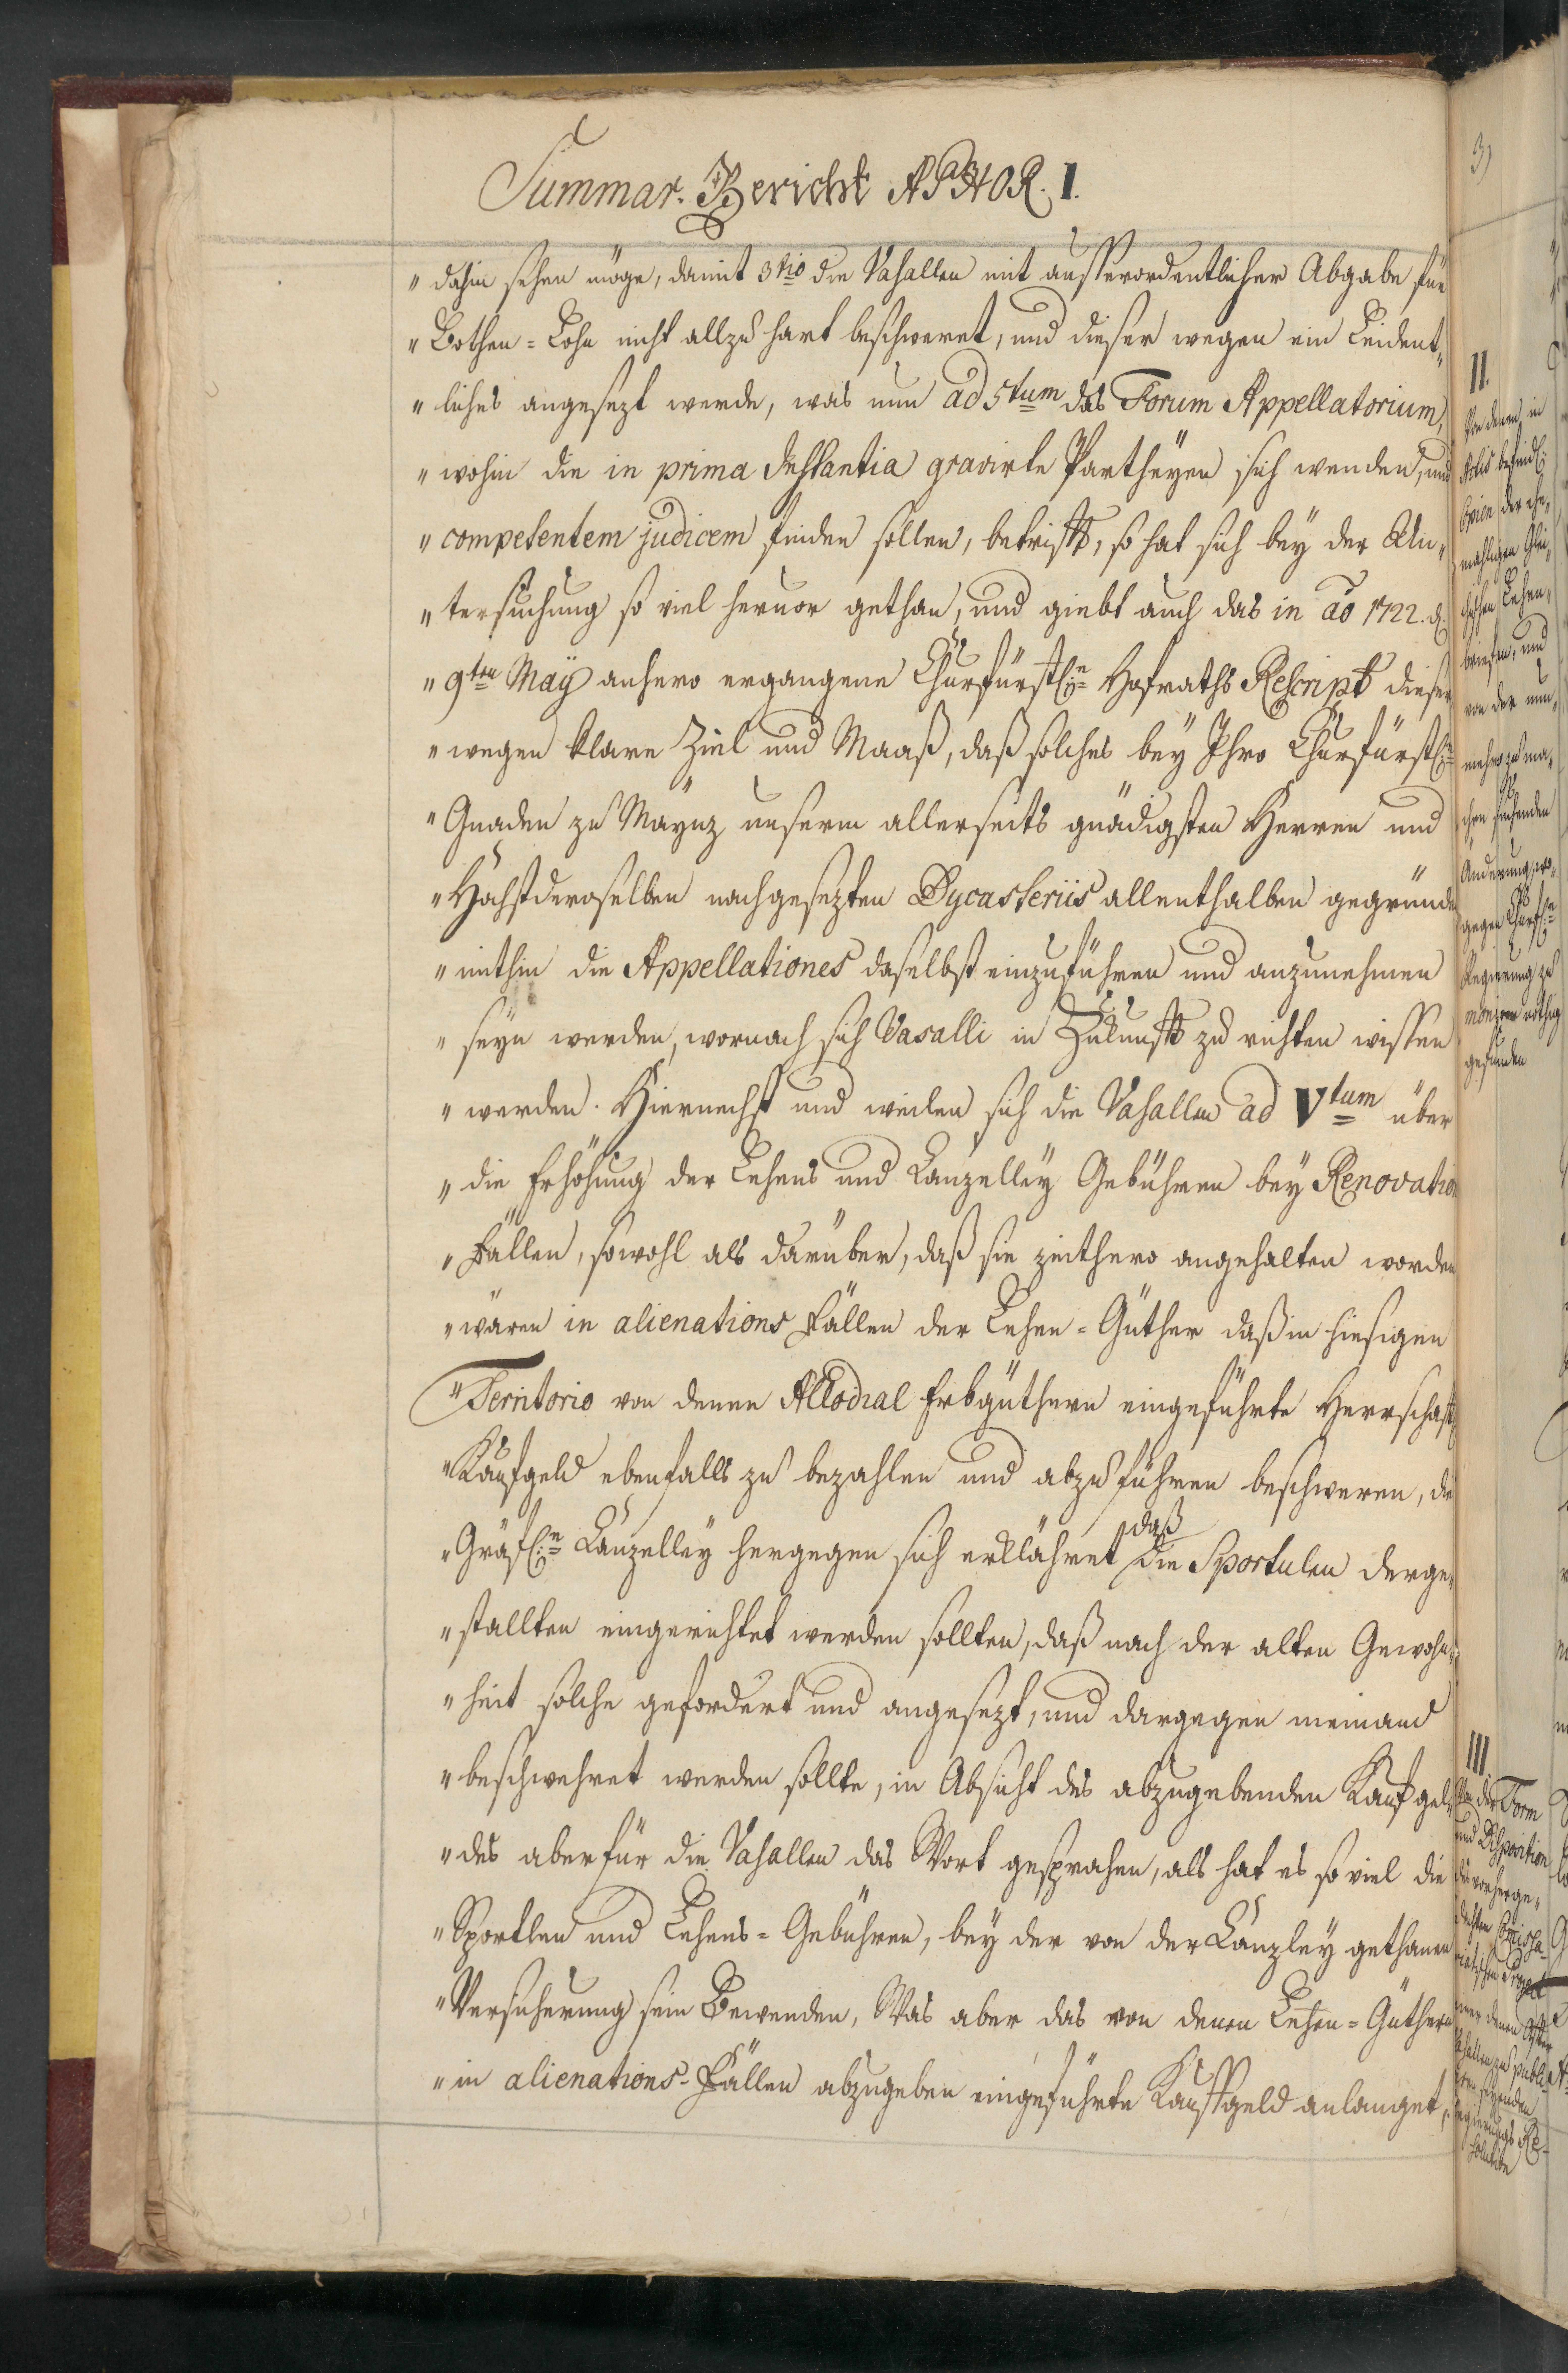 Summar. Bericht APHOR. I.
„ dahin sehen möge, damit 3tio die Vasallen mit ausserordentlicher Abgabe für
„ Bothen=Lohn nicht allzu hart beschweret, und dieser wegen ein Leident„
„ liches angesezt werde, was nun ad 5tum das Forum Appellatorium,
„ wohin die in prima Instantia gravirte Partheyen sich wenden, und
„ competentem judicem finden sollen, betrifft, so hat sich bey der Un„
„ tersuchung so viel hervor gethan, und giebt auch das in ao 1722. d.
„ 9ten May anhero ergangene Churfürstl:n Hofraths Rescript dieser
„ wegen klare Ziel und Maaß, daß solches bey Ihro Churfürstl:n
„ Gnaden zu Maynz unserm allerseits gnädigsten Herren und
„ Höchstderoselben nachgesezten Dycasteriis allenthalben gegründet
„ mithin die Appellationes daselbst einzuführen und anzunehmen
„ seyn werden, wornach sich Vasalli in Zukunft zu richten wissen
„ werden. Hiernechst und weilen sich die Vasallen ad Vtum über
„ die Erhöhung der Lehens und Canzelley Gebühren bey Renovation
„ Fällen, sowohl als darüber, daß sie zeithero angehalten worden
„ wären in alienations Fällen der Lehen=Güther daß in hiesigen
„ Territorio von denen Allodial Erbgüthern eingeführte Herrschaftl
„ Kaufgeld ebenfalls zu bezahlen und abzuführen beschweren, die
„ Gräfl:n Canzelley hergegen sich erklähret daß die Sportulen derge„
„ stallten eingerichtet werden sollten, daß nach der alten Gewohn„
„ heit solche gefordert und angesezt, und dargegen niemand
„ beschwehret werden sollte, in Absicht des abzugebenden Kauf gel„
„ des aber für die Vasallen das Wort gesprochen, als hat es so viel die
„ Sportlen und Lehens=Gebühren, bey der von der Canzley gethanen
„ Versicherung sein Bewenden, Was aber das von denen Lehen=Güthern
„ in alienations-Fällen abzugeben eingeführte Kauffgeld anlanget,
3)
II.
Von denen in
Actis befindl:
Copien der ehe„
mahligen Glei„
chischen Lehen„
briefen, und
von der nun„
mehro zu ma„
chen suchenden
Änderung, wo„
gegen Churfl:n
Regierung zu
moniren nöthig
gefunden
III.
Von der Form
und Disposition
des vorherge„